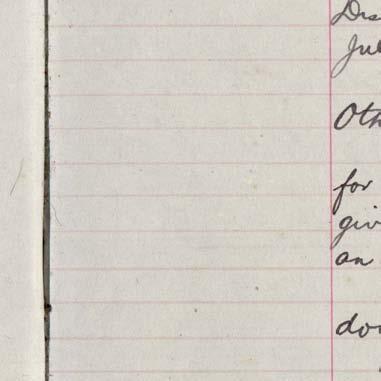 Dis
Jul
Oth
for
giv
an
do